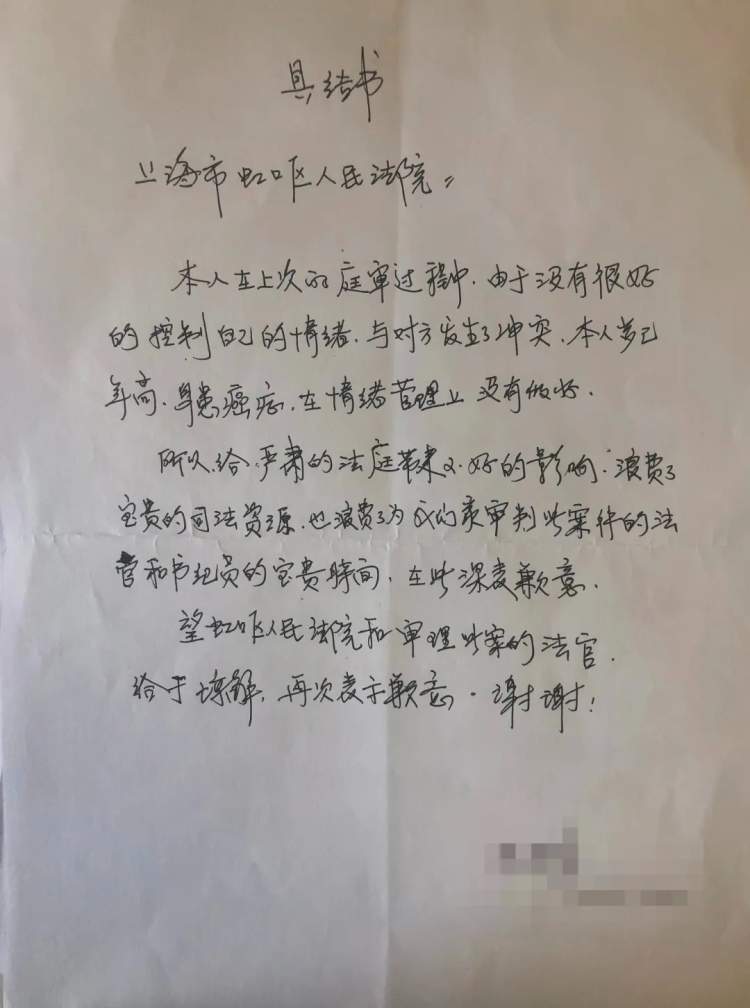 具结书
上海市虹口区人民法院：
本人在上次的庭审过程中．由于没有很好
的控制自己的情绪．与对方发生了冲突．本人岁已
年高．身患癌症．在情绪管理上没有做好．
所以给严肃的法庭带来不好的影响．浪费了
宝贵的司法资源．也浪费了为我们来审判此案件的法
官和书纪员的宝贵时间．在此深表歉意．
望虹口区人民法院和审理此案的法官．
给于谅解．再次表示歉意．谢谢！